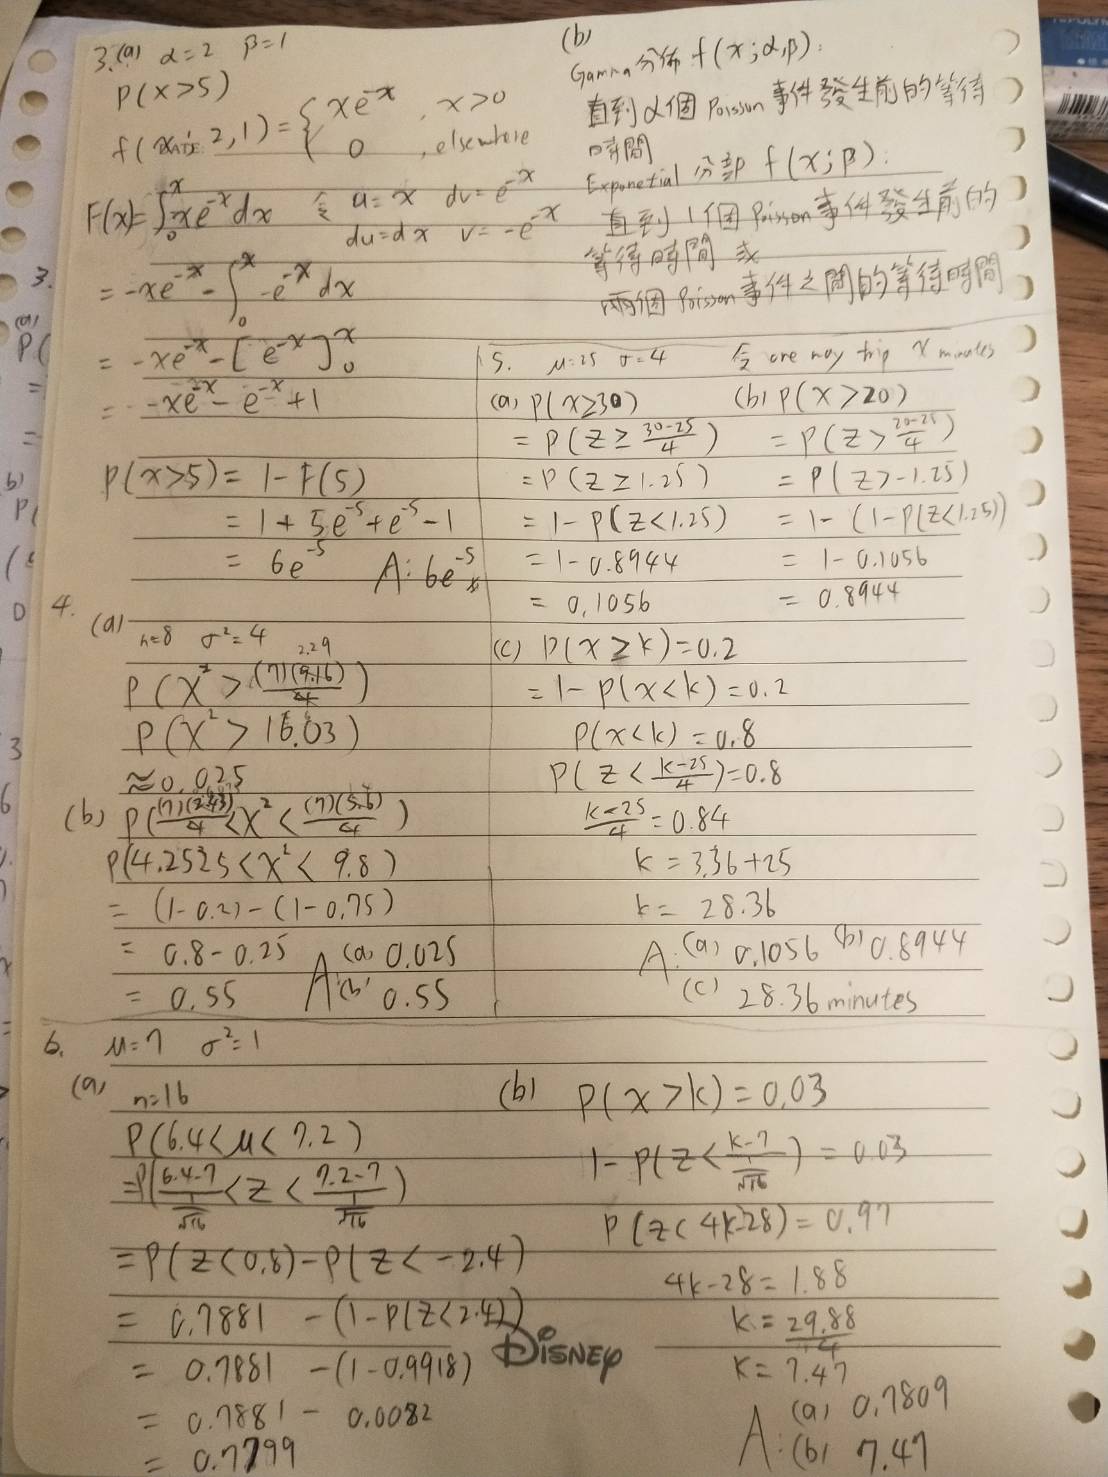 3.(a) α=2 β=1
P(x>5)
f(x; 2,1) = { xe^-x , x>0
0 , elsewhere
F(x)=∫_0^x xe^-x dx 令 u=x dv=e^-x
du=dx v=-e^-x
= -xe^-x - ∫_0^x -e^-x dx
= -xe^-x - [e^-x]_0^x
= -xe^-x - e^-x +1
P(x>5) = 1-F(5)
= 1+5e^-5+e^-5-1
= 6e^-5 A: 6e^-5
(b)
Gamma 分佈 f(x;α,β):
直到α個 Poisson 事件發生前的等待
時間
Exponetial 分部 f(x;β):
直到1個 Poisson事件發生前的
等待時間 或
兩個 Poisson事件之間的等待時間
4.
(a) n=8 σ²=4
2.29
P(X² > (7)(9.16)/4)
P(X² > 16.03)
≈0.025
(b) P((7)(2.43)/4 <X² < (7)(5.6)/4)
P(4.2525 <X² < 9.8)
= (1-0.2)-(1-0.75)
= 0.8-0.25
= 0.55
A (a) 0.025
(b) 0.55
5. μ=25 σ=4 令 one way trip X minutes
(a) P(x≥30)
= P(Z ≥ 30-25/4)
= P(Z ≥ 1.25)
= 1-P(Z<1.25)
= 1-0.8944
= 0.1056
(b) P(x>20)
= P(Z> 20-25/4)
= P(Z>-1.25)
= 1-(1-P(Z<1.25))
= 1-0.1056
= 0.8944
(c) P(x≥k)=0.2
= 1-P(x<k)=0.2
P(x<k)=0.8
P(Z< k-25/4)=0.8
k-25/4 = 0.84
k = 3.36+25
k= 28.36
A: (a) 0.1056 (b) 0.8944
(c) 28.36 minutes
6. μ=7 σ²=1
(a) n=16
P(6.4<μ<7.2)
=P(6.4-7 / 1/√16 <Z< 7.2-7 / 1/√16)
=P(Z<0.8)-P(Z<-2.4)
= 0.7881 -(1-P(Z<2.4))
= 0.7881 -(1-0.9918)
= 0.7881 - 0.0082
= 0.7799
(b) P(x>k)=0.03
1-P(Z< k-7 / 1/√16) = 0.03
P(Z< 4k-28) = 0.97
4k-28=1.88
k = 29.88/4
k= 7.47
A: (a) 0.7809
(b) 7.47
DISNEY
3.
(a)
P(
=
=
b)
P(